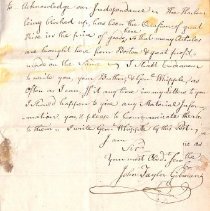 to Acknowledge our Independence. The Harbor
being blocked up, has been the Occasion of great
rise in the price of goods, so that many Articles
are brought here from Boston & good profit
made on the Same. I Shall Endeavour
to write you, your Brother, & Genl. Whipple, as
Often as I can, If at any time in my letters to you
I Should happen to give any Material Infor-
mation, you'l please to Communicate the same
to them. I wrote Genl. Whipple by this Post.
I am
Sir
Your most Obedt. Servt.
John Taylor Gilman